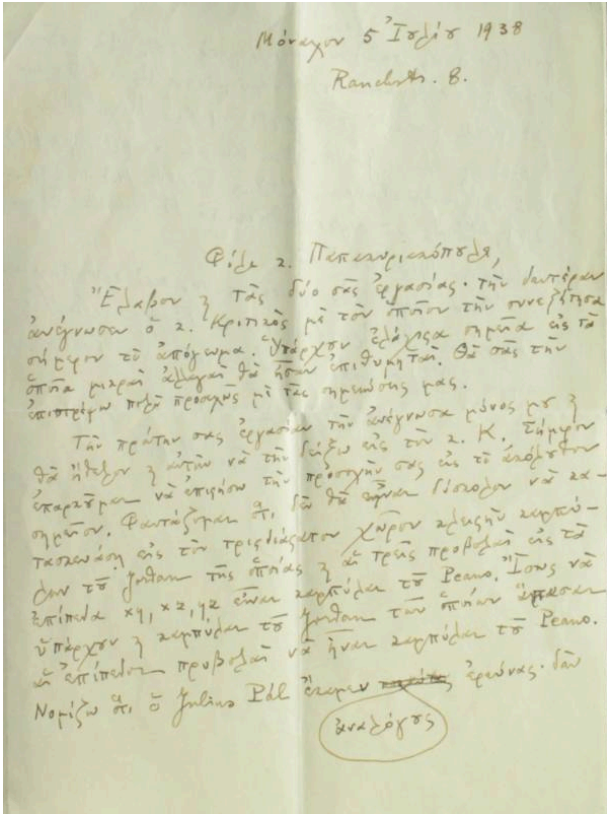 Μόναχον 5 Ἰουλίου 1938
Rauchstr. 8.
Φίλε κ. Παπακυριακόπουλε,
Ἔλαβον κ τὰς δύο σας ἐργασίας. τὴν δευτέραν
ἀνέγνωσεν ὁ κ. Κριτικὸς μὲ τὸν ὁποῖον τὴν συνεζήτησα
σήμερον τὸ ἀπόγευμα. Ὑπάρχουν ἐλάχιστα σημεῖα εἰς τὰ
ὁποῖα μικραὶ ἀλλαγαὶ θὰ ἦσαν ἐπιθυμηταί. Θὰ σᾶς τὴν
ἐπιστρέψω πολὺ προσεχῶς μὲ τὰς σημειώσεις μας.
Τὴν πρώτην σας ἐργασίαν τὴν ἀνέγνωσα μόνος μου κ
θὰ ἤθελον κ αὐτὴν νὰ τὴν δείξω εἰς τὸν κ. Κ. Σήμερον
νὰ ἐπιστήσω τὴν προσοχήν σας εἰς τὸ ἀκόλουθον
σημεῖον. Φαντάζομαι ὅτι δὲν θὰ εἶναι δύσκολον νὰ κα-
τασκευάσῃ εἰς τὸν τρισδιάστατον χῶρον κλειστὴν καμπύ-
λην τοῦ Jordan τῆς ὁποίας κ αἱ τρεῖς προβολαὶ εἰς τὰ
ἐπίπεδα xy, xz, yz εἶναι καμπύλαι τοῦ Peano. Ἴσως νὰ
ὑπάρχουν κ καμπύλαι τοῦ Jordan τῶν ὁποίων ἅπασαι
αἱ ἐπίπεδοι προβολαὶ νὰ ἦναι καμπύλαι τοῦ Peano.
Νομίζω ὅτι ὁ Julius Pál ἔκαμεν ἐρεύνας. δὲν
ἀναλόγους